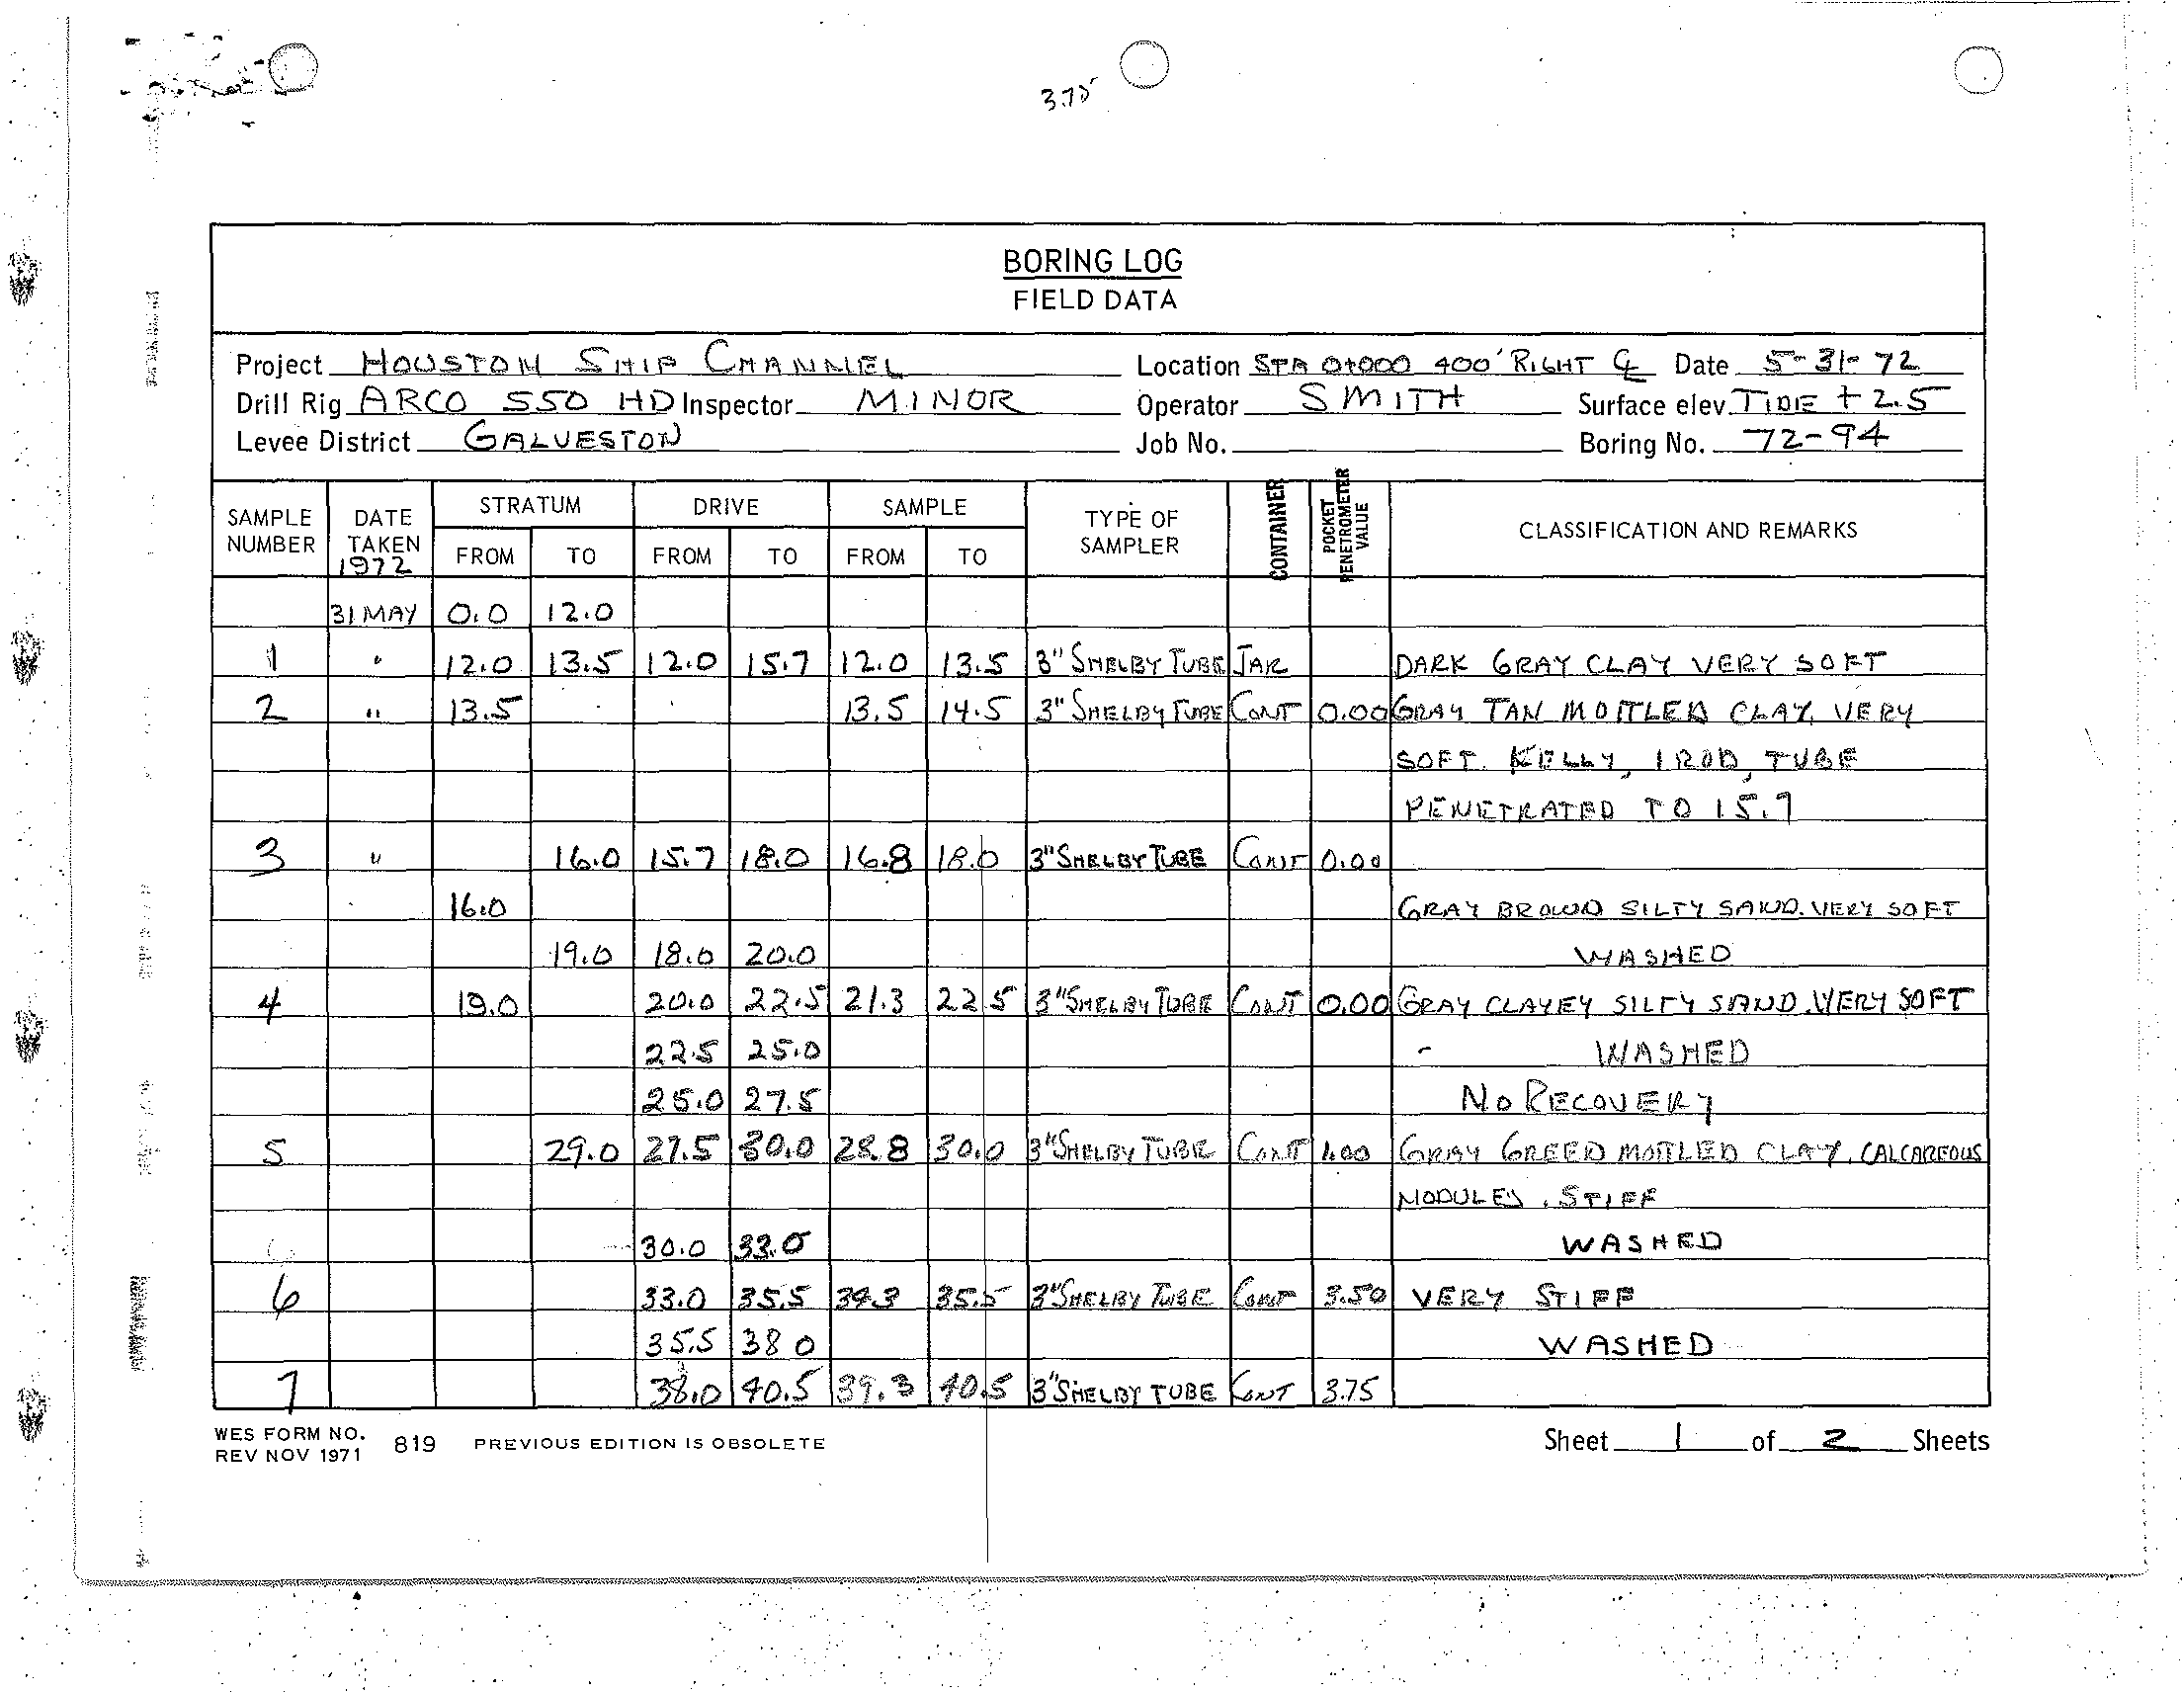 3.75
BORING LOG
FIELD DATA
Project HOUSTON SHIP CHANNEL Location STA 0+000 400' RIGHT ℄ Date 5-31-72
Drill Rig ARCO 550 HD Inspector MINOR Operator SMITH Surface elev. TIDE + 2.5
Levee District GALVESTON Job No. Boring No. 72-94
SAMPLE NUMBER DATE TAKEN 1972 STRATUM FROM TO DRIVE FROM TO SAMPLE FROM TO TYPE OF SAMPLER CONTAINER POCKET PENETROMETER VALUE CLASSIFICATION AND REMARKS
31 MAY 0.0 12.0
1 " 12.0 13.5 12.0 15.7 12.0 13.5 3" SHELBY TUBE JAR DARK GRAY CLAY VERY SOFT
2 " 13.5 13.5 14.5 3" SHELBY TUBE CONT 0.00 GRAY TAN MOTTLED CLAY, VERY
SOFT. KELLY, 1 ROD, TUBE
PENETRATED TO 15.7
3 " 16.0 15.7 18.0 16.8 18.0 3" SHELBY TUBE CONT 0.00
16.0 GRAY BROWN SILTY SAND. VERY SOFT
19.0 18.0 20.0 WASHED
4 19.0 20.0 22.5 21.3 22.5 3" SHELBY TUBE CONT 0.00 GRAY CLAYEY SILTY SAND. VERY SOFT
22.5 25.0 - WASHED
25.0 27.5 NO RECOVERY
5 29.0 27.5 30.0 28.8 30.0 3" SHELBY TUBE CONT 1.00 GRAY GREED MOTTLED CLAY, CALCAREOUS
NODULES, STIFF
30.0 33.0 WASHED
6 33.0 35.5 34.3 35.5 3" SHELBY TUBE CONT 3.50 VERY STIFF
35.5 38.0 WASHED
7 38.0 40.5 39.3 40.5 3" SHELBY TUBE CONT 3.75
WES FORM NO. 819 PREVIOUS EDITION IS OBSOLETE Sheet 1 of 2 Sheets
REV NOV 1971